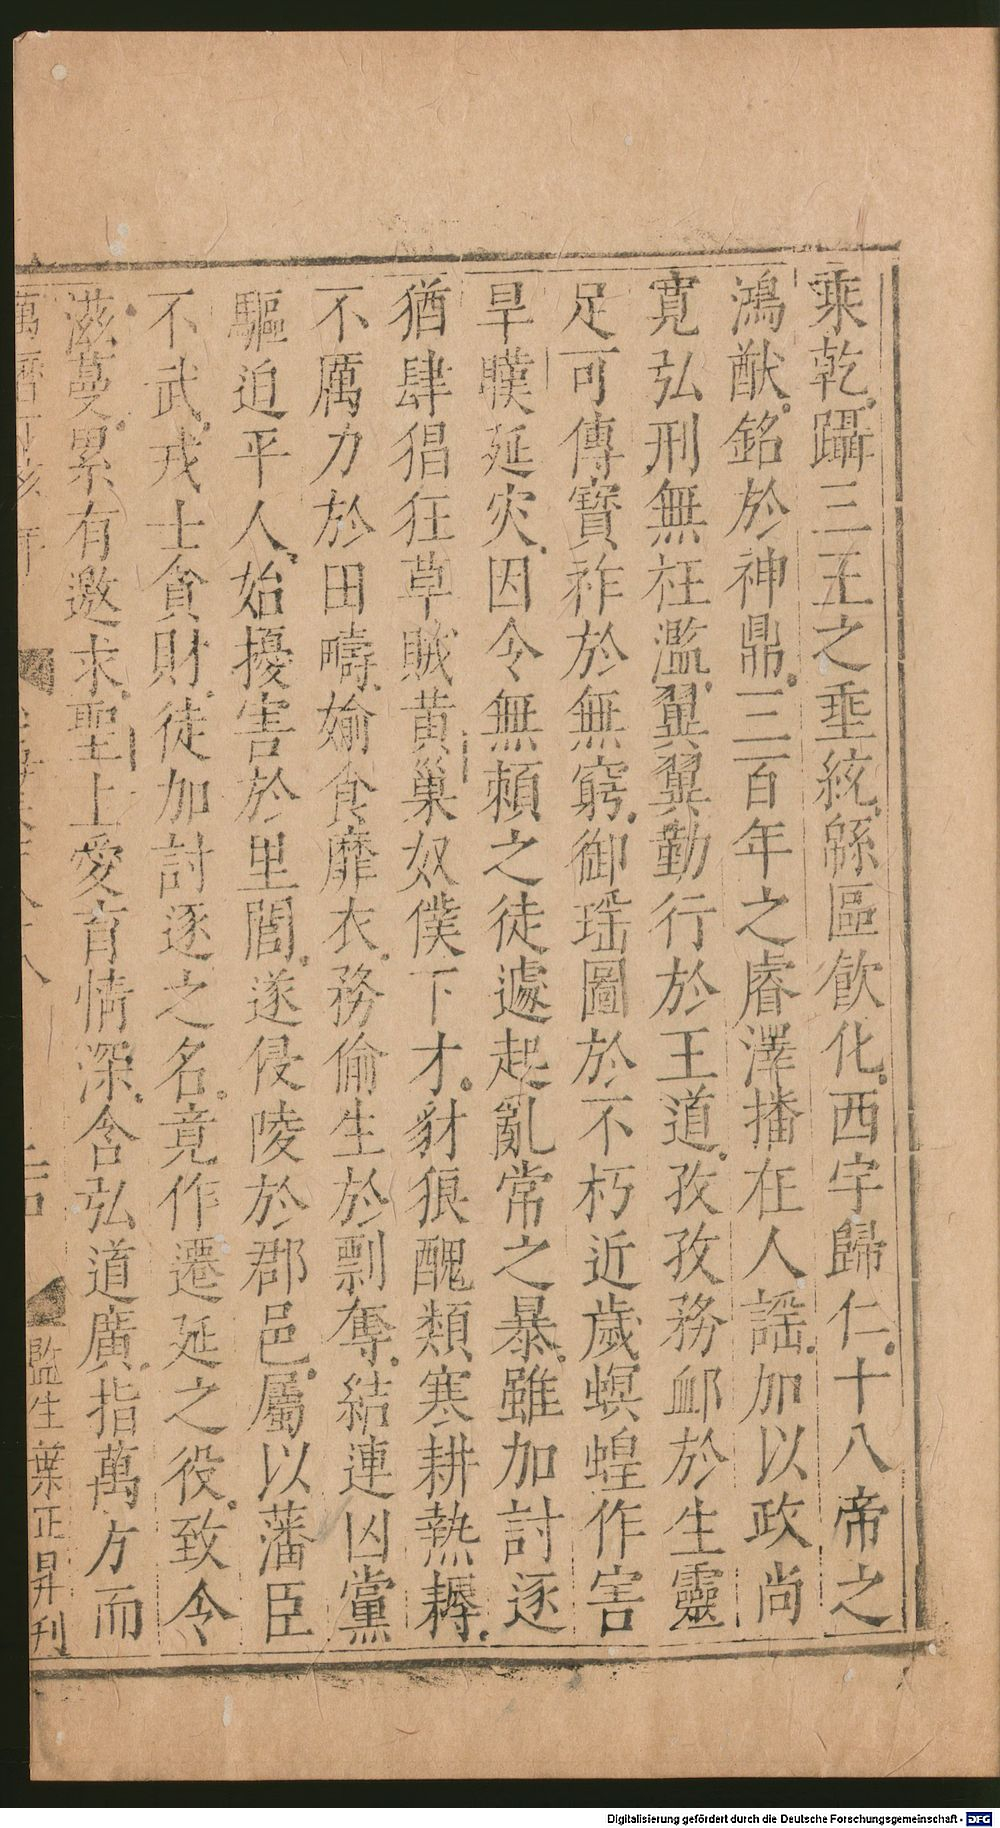 乘乾。躡三王之垂統。緜區飲化。西宇歸仁。十八帝之
鴻猷。銘於神鼎。三百年之睿澤播在人謡。加以政尚
寛弘刑無枉濫。翼翼勤行於王道。孜孜務䘏於生靈
足可傳寳祚於無窮。御瑶圖於不朽近歲螟蝗作害
旱暵延灾。因令無賴之徒遽起亂常之暴。雖加討逐
猶肆猖狂草賊黄巢奴僕下才。豺狼醜類寒耕熱耨。
不厲力於田疇。婾食靡衣。務偷生於剽奪。結連凶黨
驅迫平人。始擾害於里閭。遂侵陵於郡邑。屬以藩臣
不武。戎士貪財。徒加討逐之名。竟作遷延之役。致令
滋蔓。累有邀求。聖上愛育情深。含弘道廣。指萬方而
監生葉正昇刋
Digitalisierung gefördert durch die Deutsche Forschungsgemeinschaft - DFG